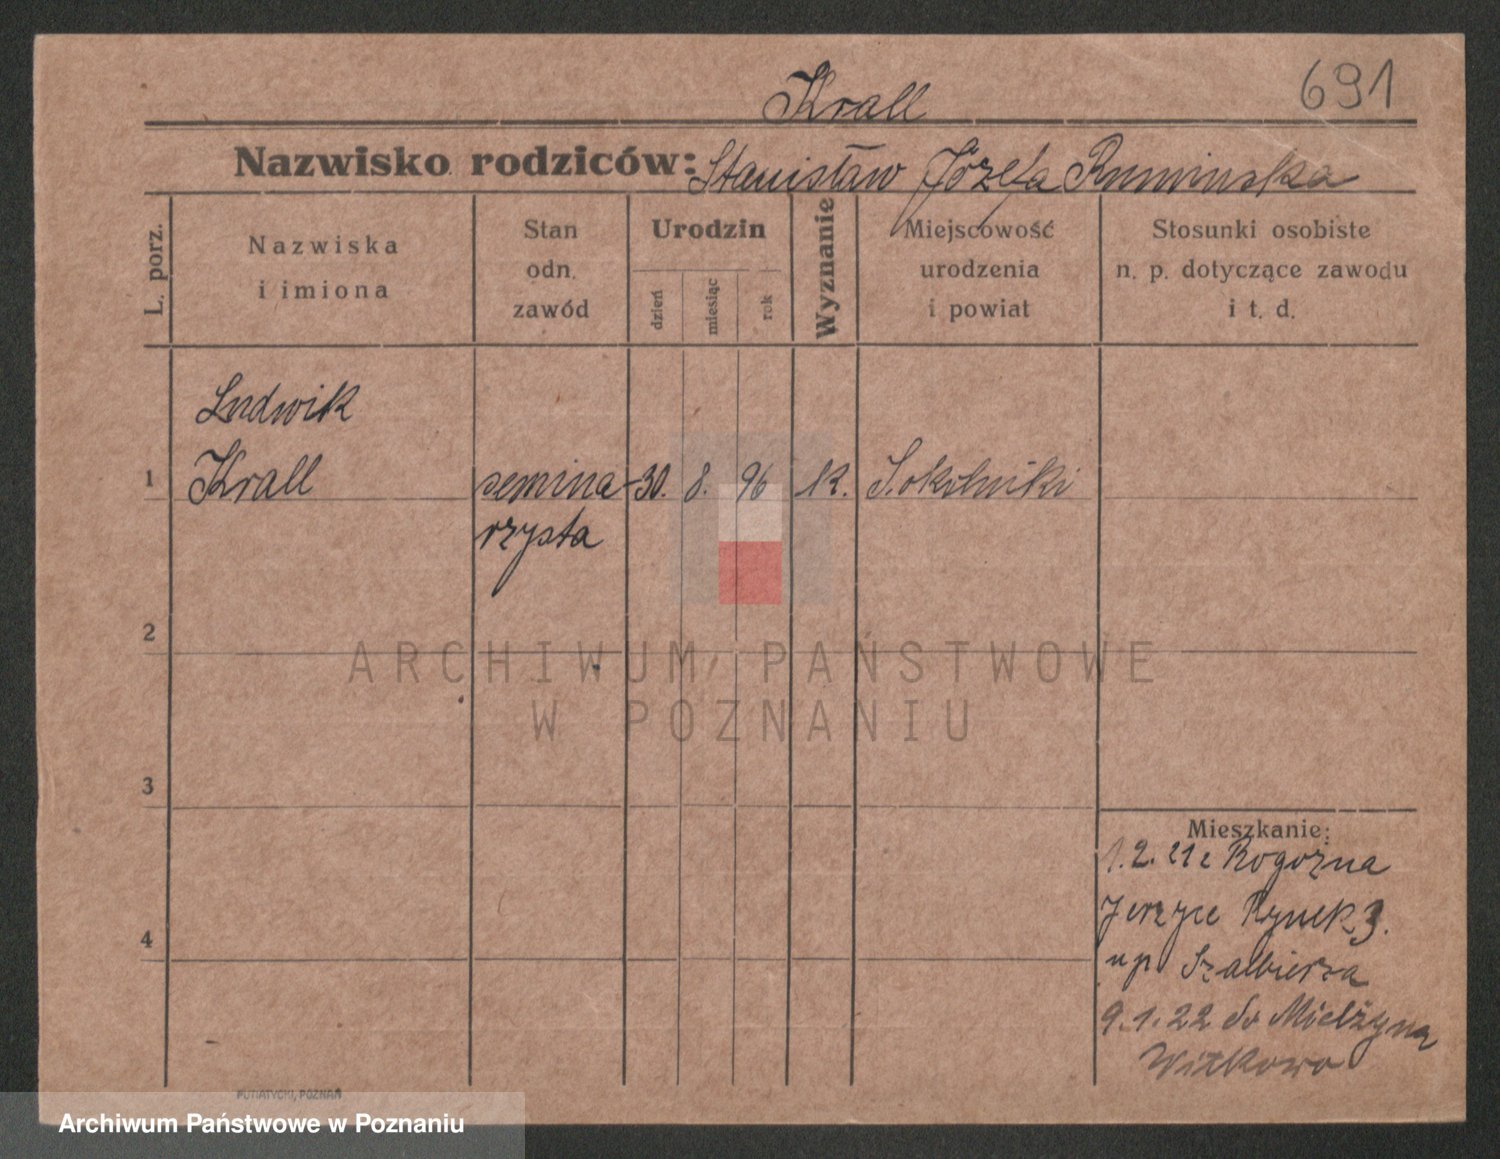 Krall
691
Nazwisko rodziców: Stanisław Józefa Rumińska
L. porz.
Nazwiska
i imiona
Stan
odn.
zawód
Urodzin
dzień
miesiąc
rok
Wyznanie
Miejscowość
urodzenia
i powiat
Stosunki osobiste
n. p. dotyczące zawodu
i t. d.
Ludwik
1 Krall semina- 30. 8. 96 k. Sokolniki
rzysta
2
ARCHIWUM PAŃSTWOWE
W POZNANIU
3
Mieszkanie:
1.2.21 z Rogoźna
4
Jerzyce Rynek 3.
up. Szalbierza
9.1.22 do Mielżyna
Witkowo
PUTIATYCKI, POZNAŃ
Archiwum Państwowe w Poznaniu